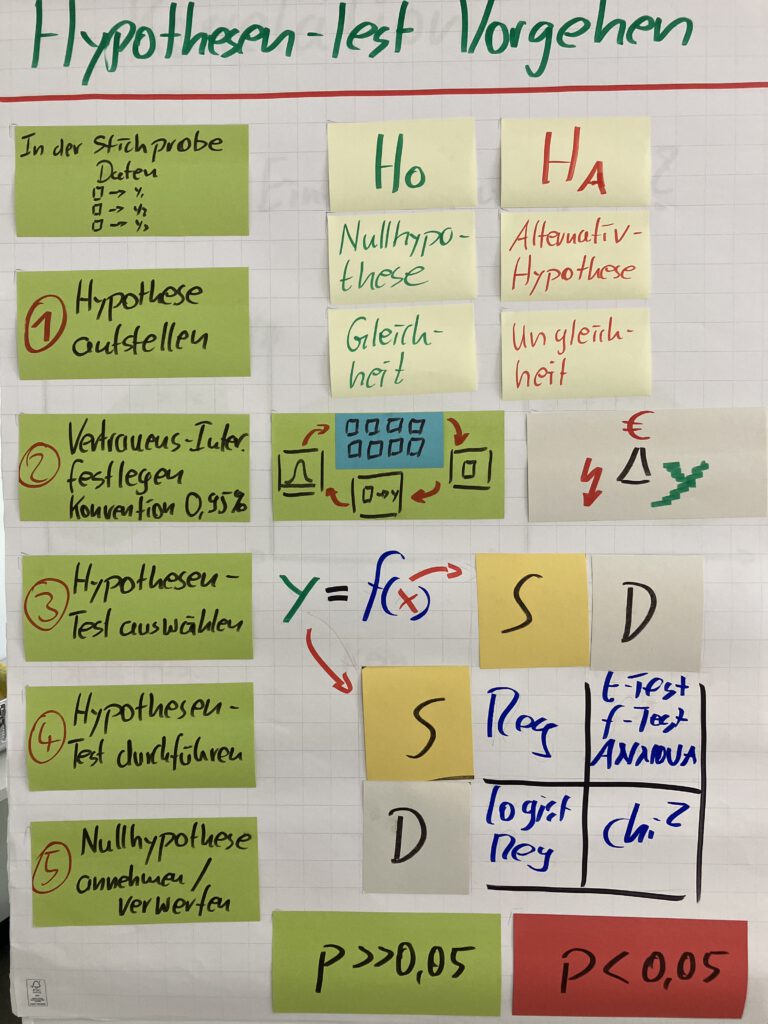 Hypothesen-Test Vorgehen
In der Stichprobe
Daten
→ y₁
→ y₂
→ y₃
H₀
HA
Nullhypo-
these
Alternativ-
Hypothese
1 Hypothese
aufstellen
Gleich-
heit
Ungleich-
heit
2 Vertrauens-Inter.
festlegen
Konvention 0,95%
→ y
€
Δ
y
3 Hypothesen-
Test auswählen
y = f(x)
S
D
4 Hypothesen-
Test durchführen
S
Reg
t-Test
f-Test
ANNOVA
D
logist
Reg
chi²
5 Nullhypothese
annehmen/
verwerfen
p>>0,05
p<0,05